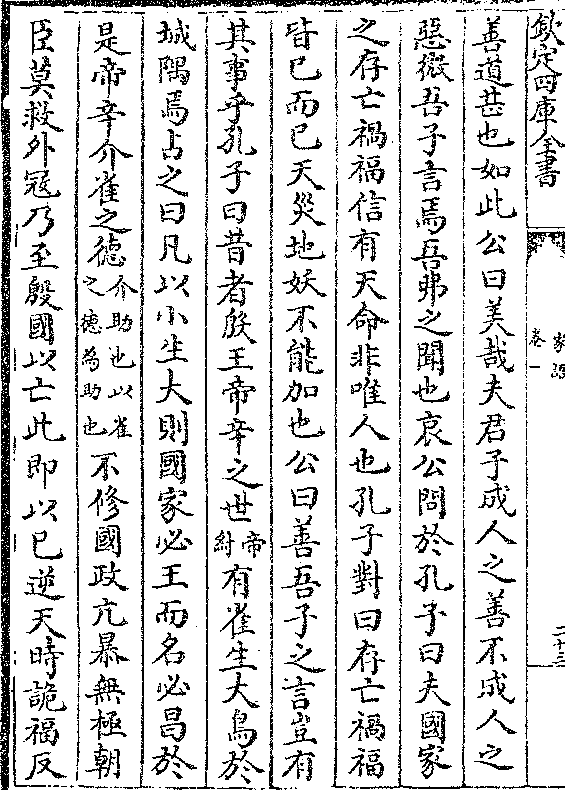 欽定四庫全書
家語
卷一
二十三
善道甚也如此公曰美哉夫君子成人之善不成人之
惡微吾子言焉吾弗之聞也哀公問於孔子曰夫國家
之存亡禍福信有天命非唯人也孔子對曰存亡禍福
皆已而已天災地妖不能加也公曰善吾子之言豈有
其事乎孔子曰昔者殷王帝辛之世帝紂有雀生大鳥於
城隅焉占之曰凡以小生大則國家必王而名必昌於
是帝辛介雀之德介助也以雀之德為助也不修國政亢暴無極朝
臣莫救外冦乃至殷國以亡此即以已逆天時詭福反